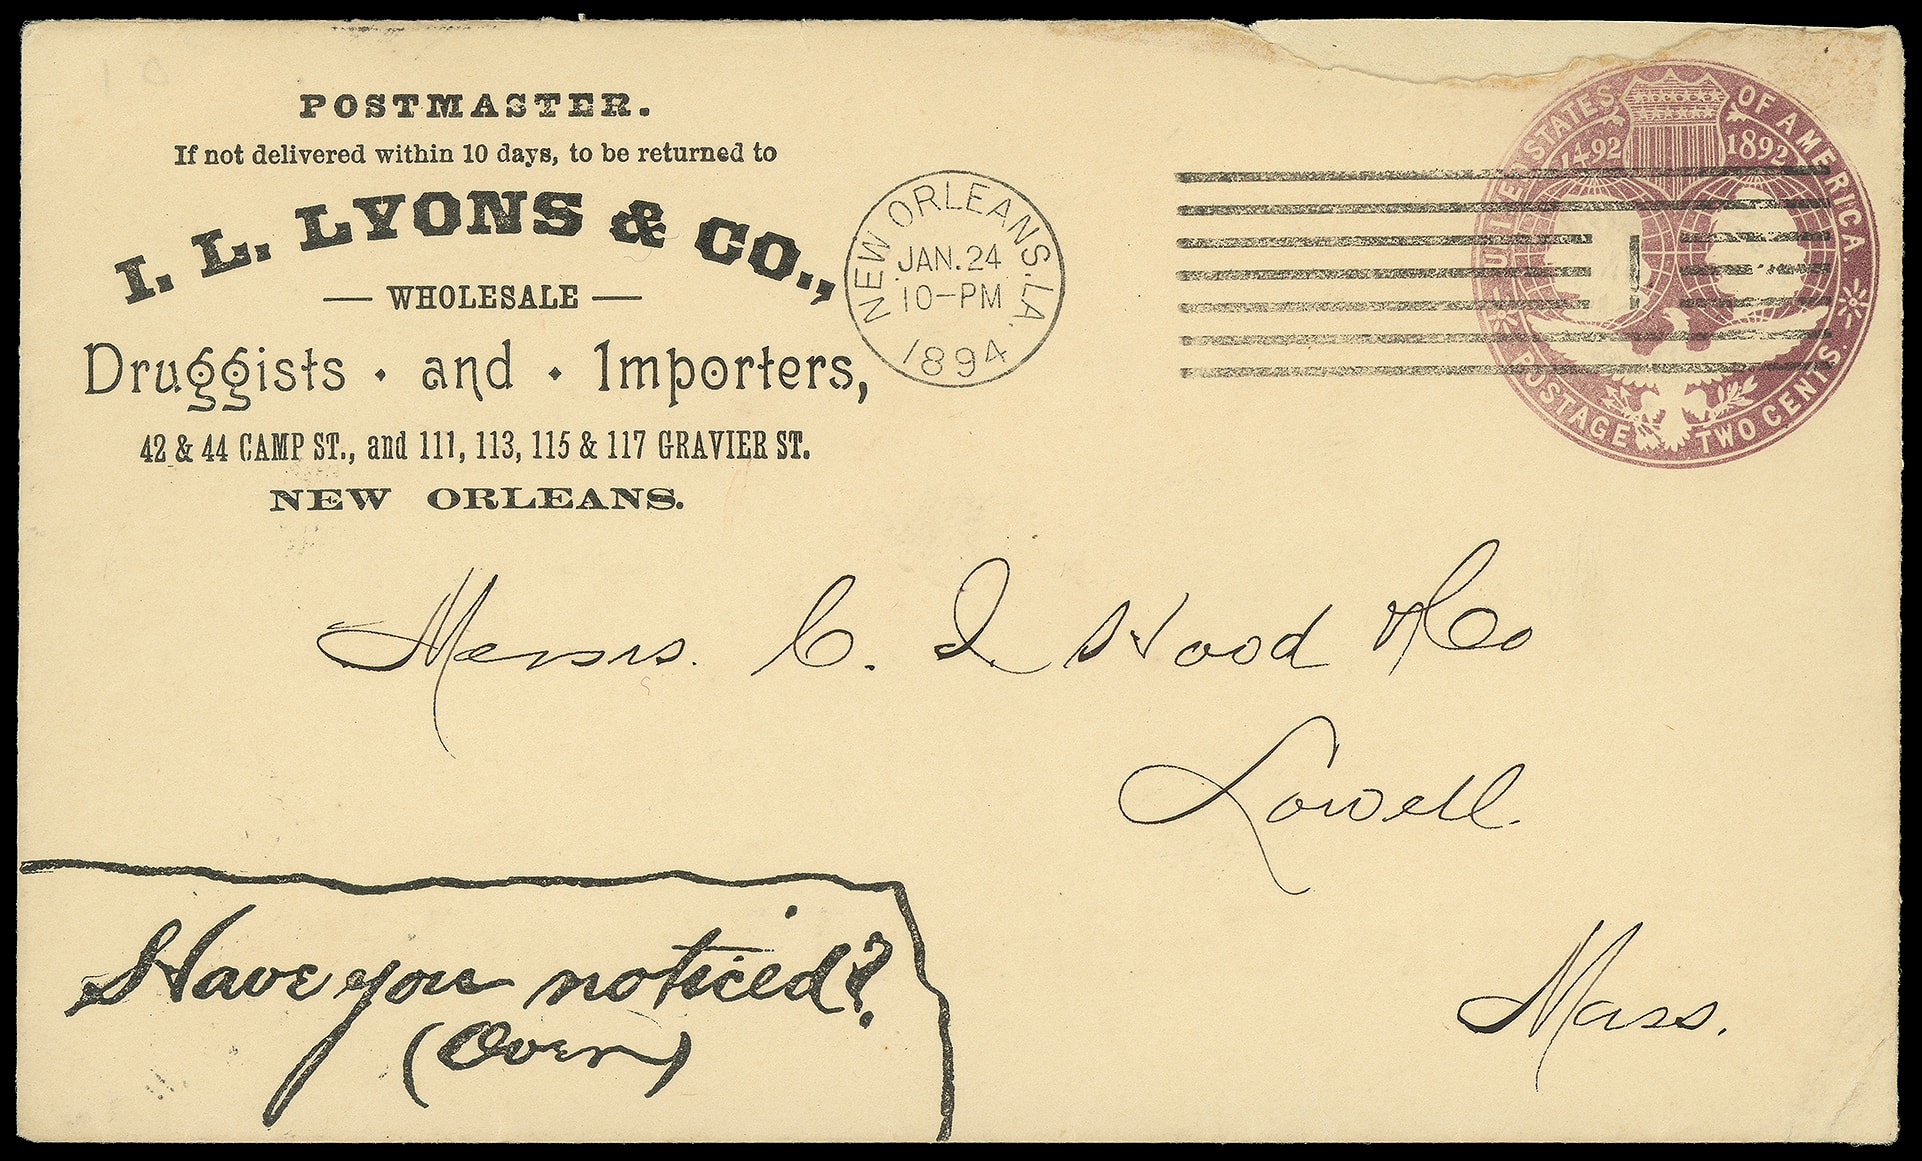 POSTMASTER.
If not delivered within 10 days, to be returned to
I. L. LYONS & CO.,
— WHOLESALE —
Druggists · and · Importers,
42 & 44 CAMP ST., and 111, 113, 115 & 117 GRAVIER ST.
NEW ORLEANS.
NEW ORLEANS. LA.
JAN. 24
10-PM
1894
UNITED STATES OF AMERICA
1492 1892
POSTAGE TWO CENTS.
1
Messrs. C. I. Hood & Co
Lowell.
Mass.
Have you noticed?
(Over)